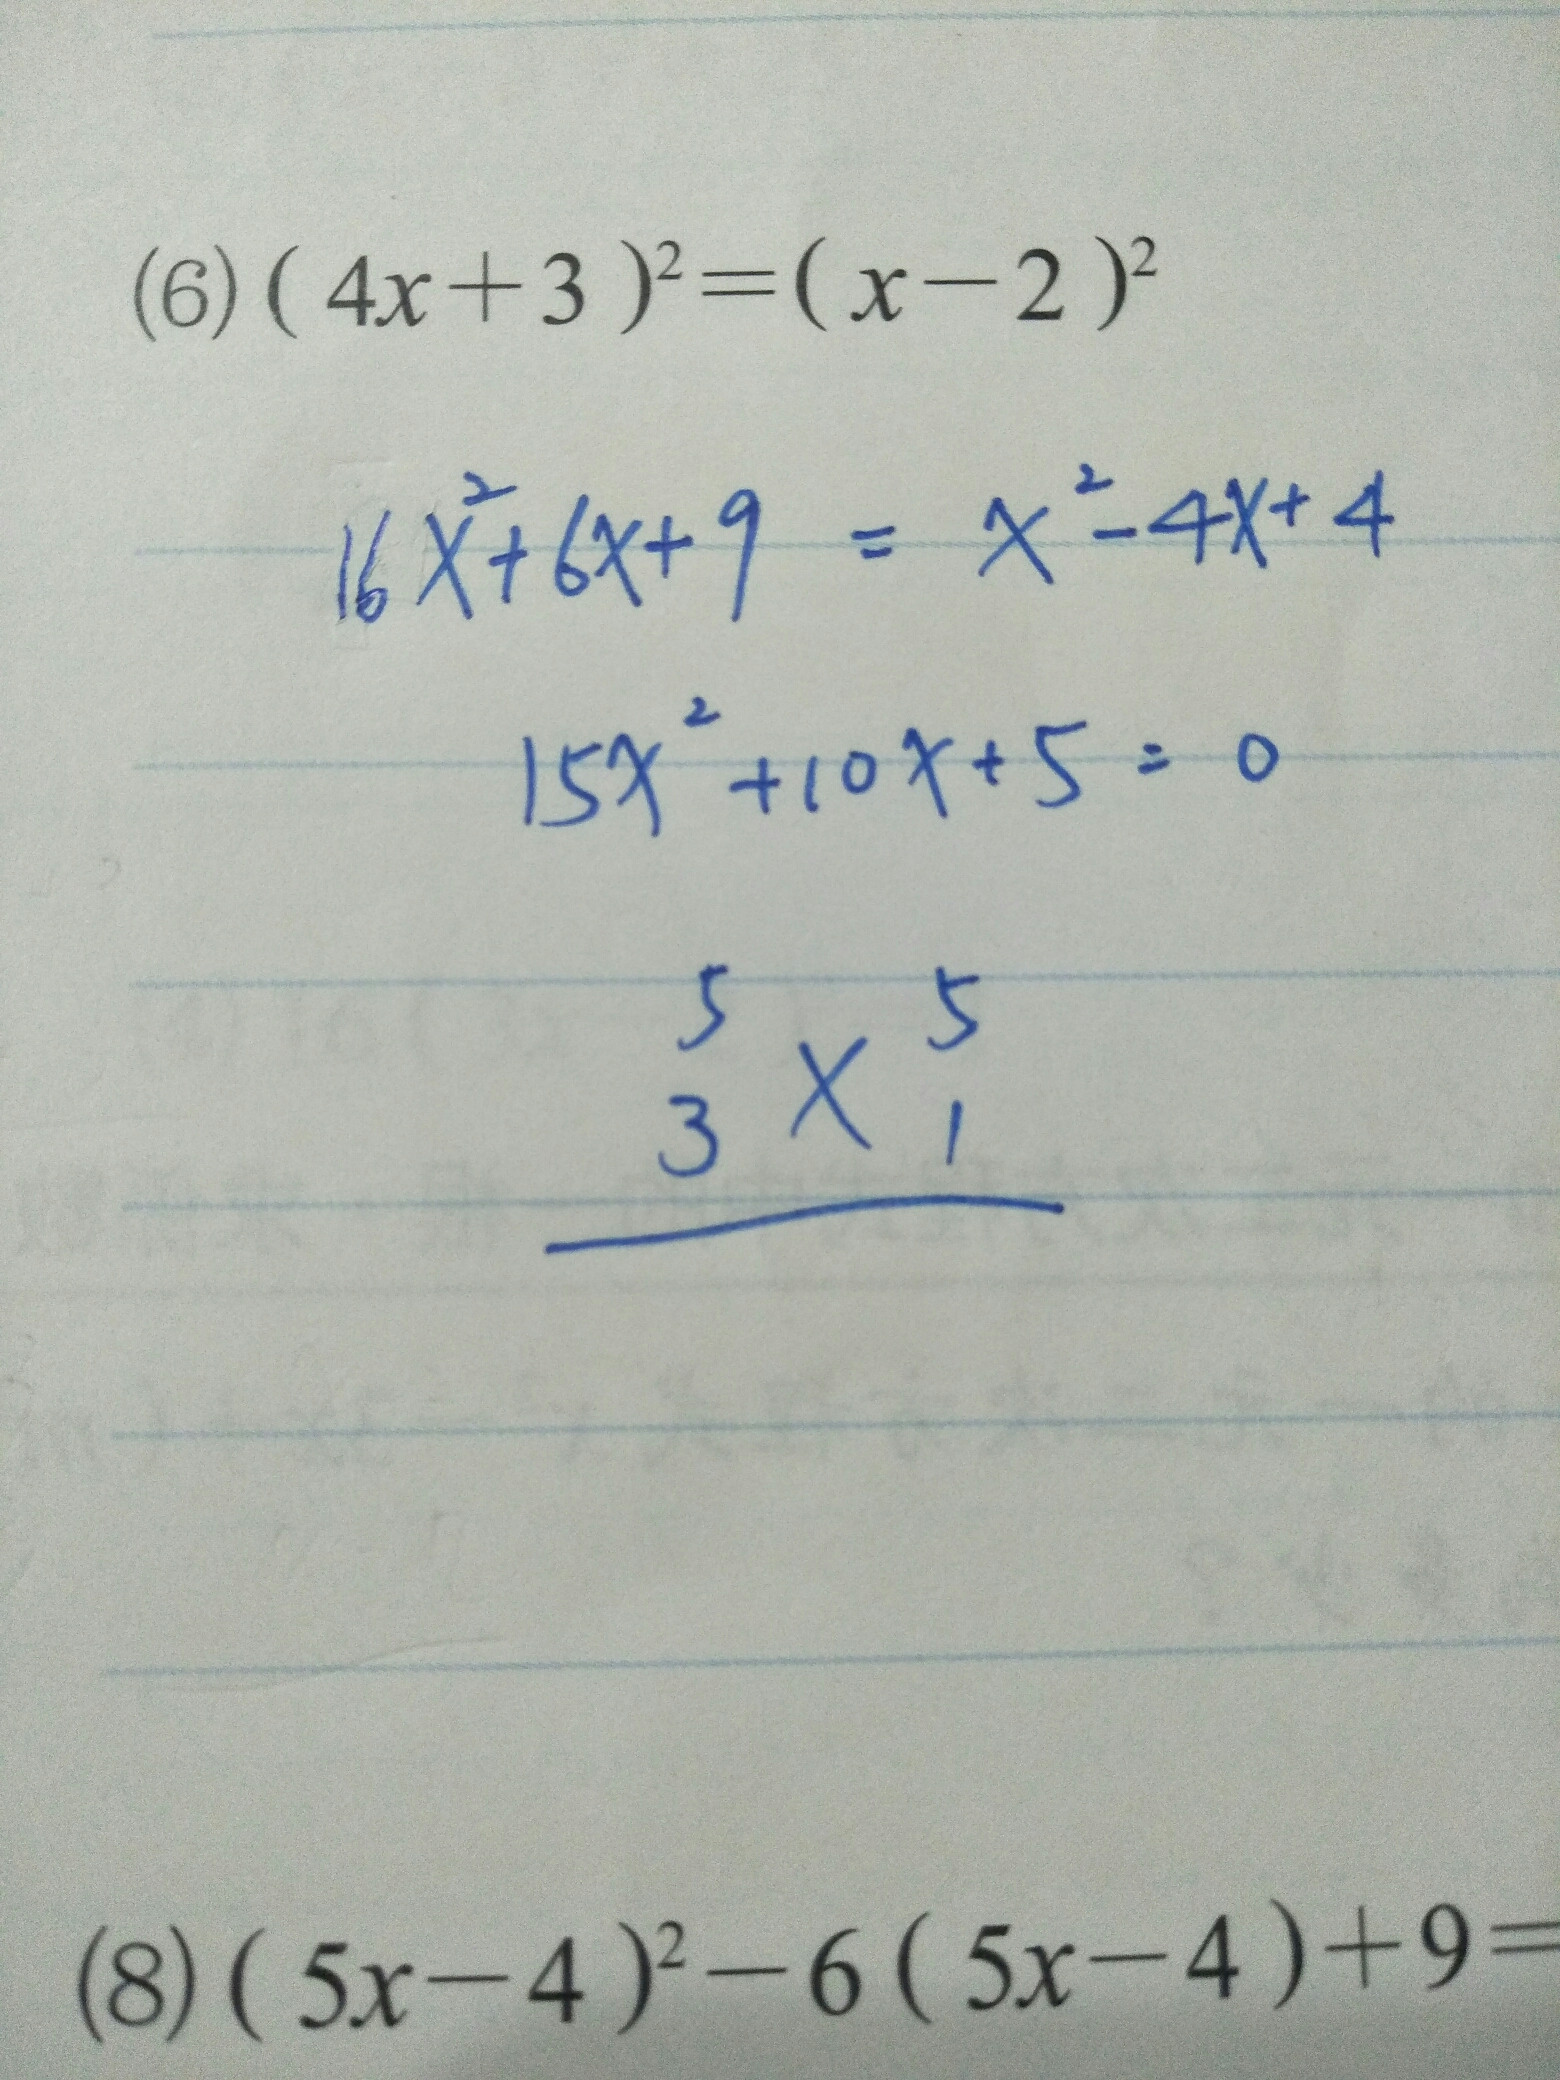 (6) ( 4x+3 )²=( x−2 )²
16x²+6x+9 = x²-4x+4
15x²+10x+5=0
5 5
x
3 1
(8) ( 5x−4 )²−6( 5x−4 )+9=